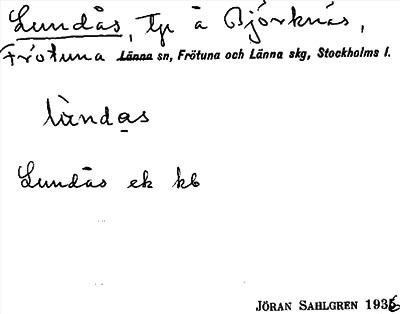 Lundås, tp å Björknäs,
Frötuna Länna sn, Frötuna och Länna skg, Stockholms l.
lùndas
Lundås ek kb
JÖRAN SAHLGREN 1936